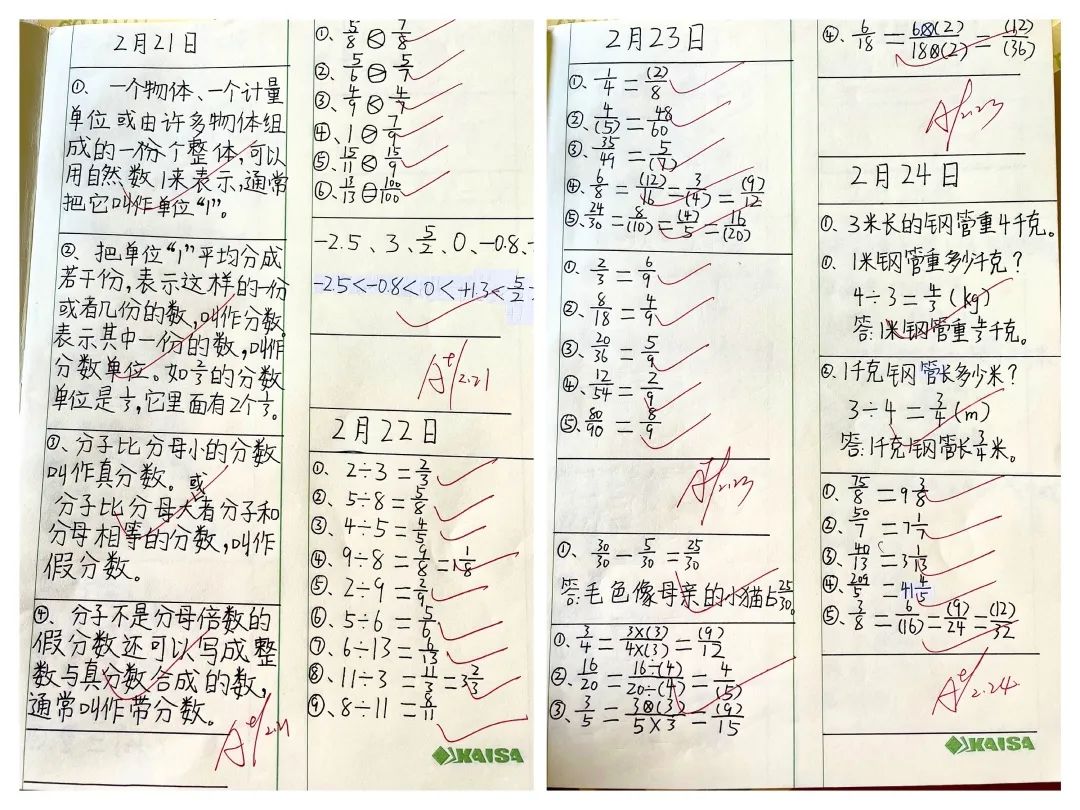 2月21日
①、一个物体、一个计量
单位或由许多物体组
成的一份个整体,可以
用自然数1来表示,通常
把它叫作单位“1”。
②、把单位“1”平均分成
若干份,表示这样的一份
或者几份的数,叫作分数。
表示其中一份的数,叫作
分数单位。如2/3的分数
单位是1/3,它里面有2个1/3。
③、分子比分母小的分数
叫作真分数。或
分子比分母大者分子和
分母相等的分数,叫作
假分数。
④、分子不是分母倍数的
假分数还可以写成整
数与真分数合成的数,
通常叫作带分数。
A优/2.21
①、5/8<7/8
②、5/6>5/7
③、4/9<4/7
④、1>7/9
⑤、15/11<15/9
⑥、13/13=100/100
-2.5、3、5/2、0、-0.8、
-2.5<-0.8<0<+1.3<5/2
A优/2.21
2月22日
①、2÷3=2/3
②、5÷8=5/8
③、4÷5=4/5
④、9÷8=9/8=1 1/8
⑤、2÷9=2/9
⑥、5÷6=5/6
⑦、6÷13=6/13
⑧、11÷3=11/3=3 2/3
⑨、8÷11=8/11
KAISA
2月23日
①、1/4=(2)/8
②、4/(5)=48/60
③、35/49=5/(7)
④、6/8=(12)/16=3/(4)=(9)/12
⑤、24/30=8/(10)=(4)/5=16/(20)
①、2/3=6/9
②、8/18=4/9
③、20/36=5/9
④、12/54=2/9
⑤、80/90=8/9
A优/2.23
①、30/30-5/30=25/30
答:毛色像母亲的小猫占25/30。
①、3/4=3×(3)/4×(3)=(9)/12
②、16/20=16÷(4)/20÷(4)=4/(5)
③、3/5=3⊗(3)/5×3=(9)/15
④、6/18=6⊗(2)/18⊗(2)=(12)/(36)
A优/2.23
2月24日
①、3米长的钢管重4千克。
①、1米钢管重多少千克?
4÷3=4/3(kg)
答:1米钢管重4/3千克。
②、1千克钢管长多少米?
3÷4=3/4(m)
答:1千克钢管长3/4米。
①、75/8=9 3/8
②、50/7=7 1/7
③、40/13=3 1/13
④、209/5=41 4/5
⑤、3/8=6/(16)=(9)/24=(12)/32
A优/2.24
KAISA